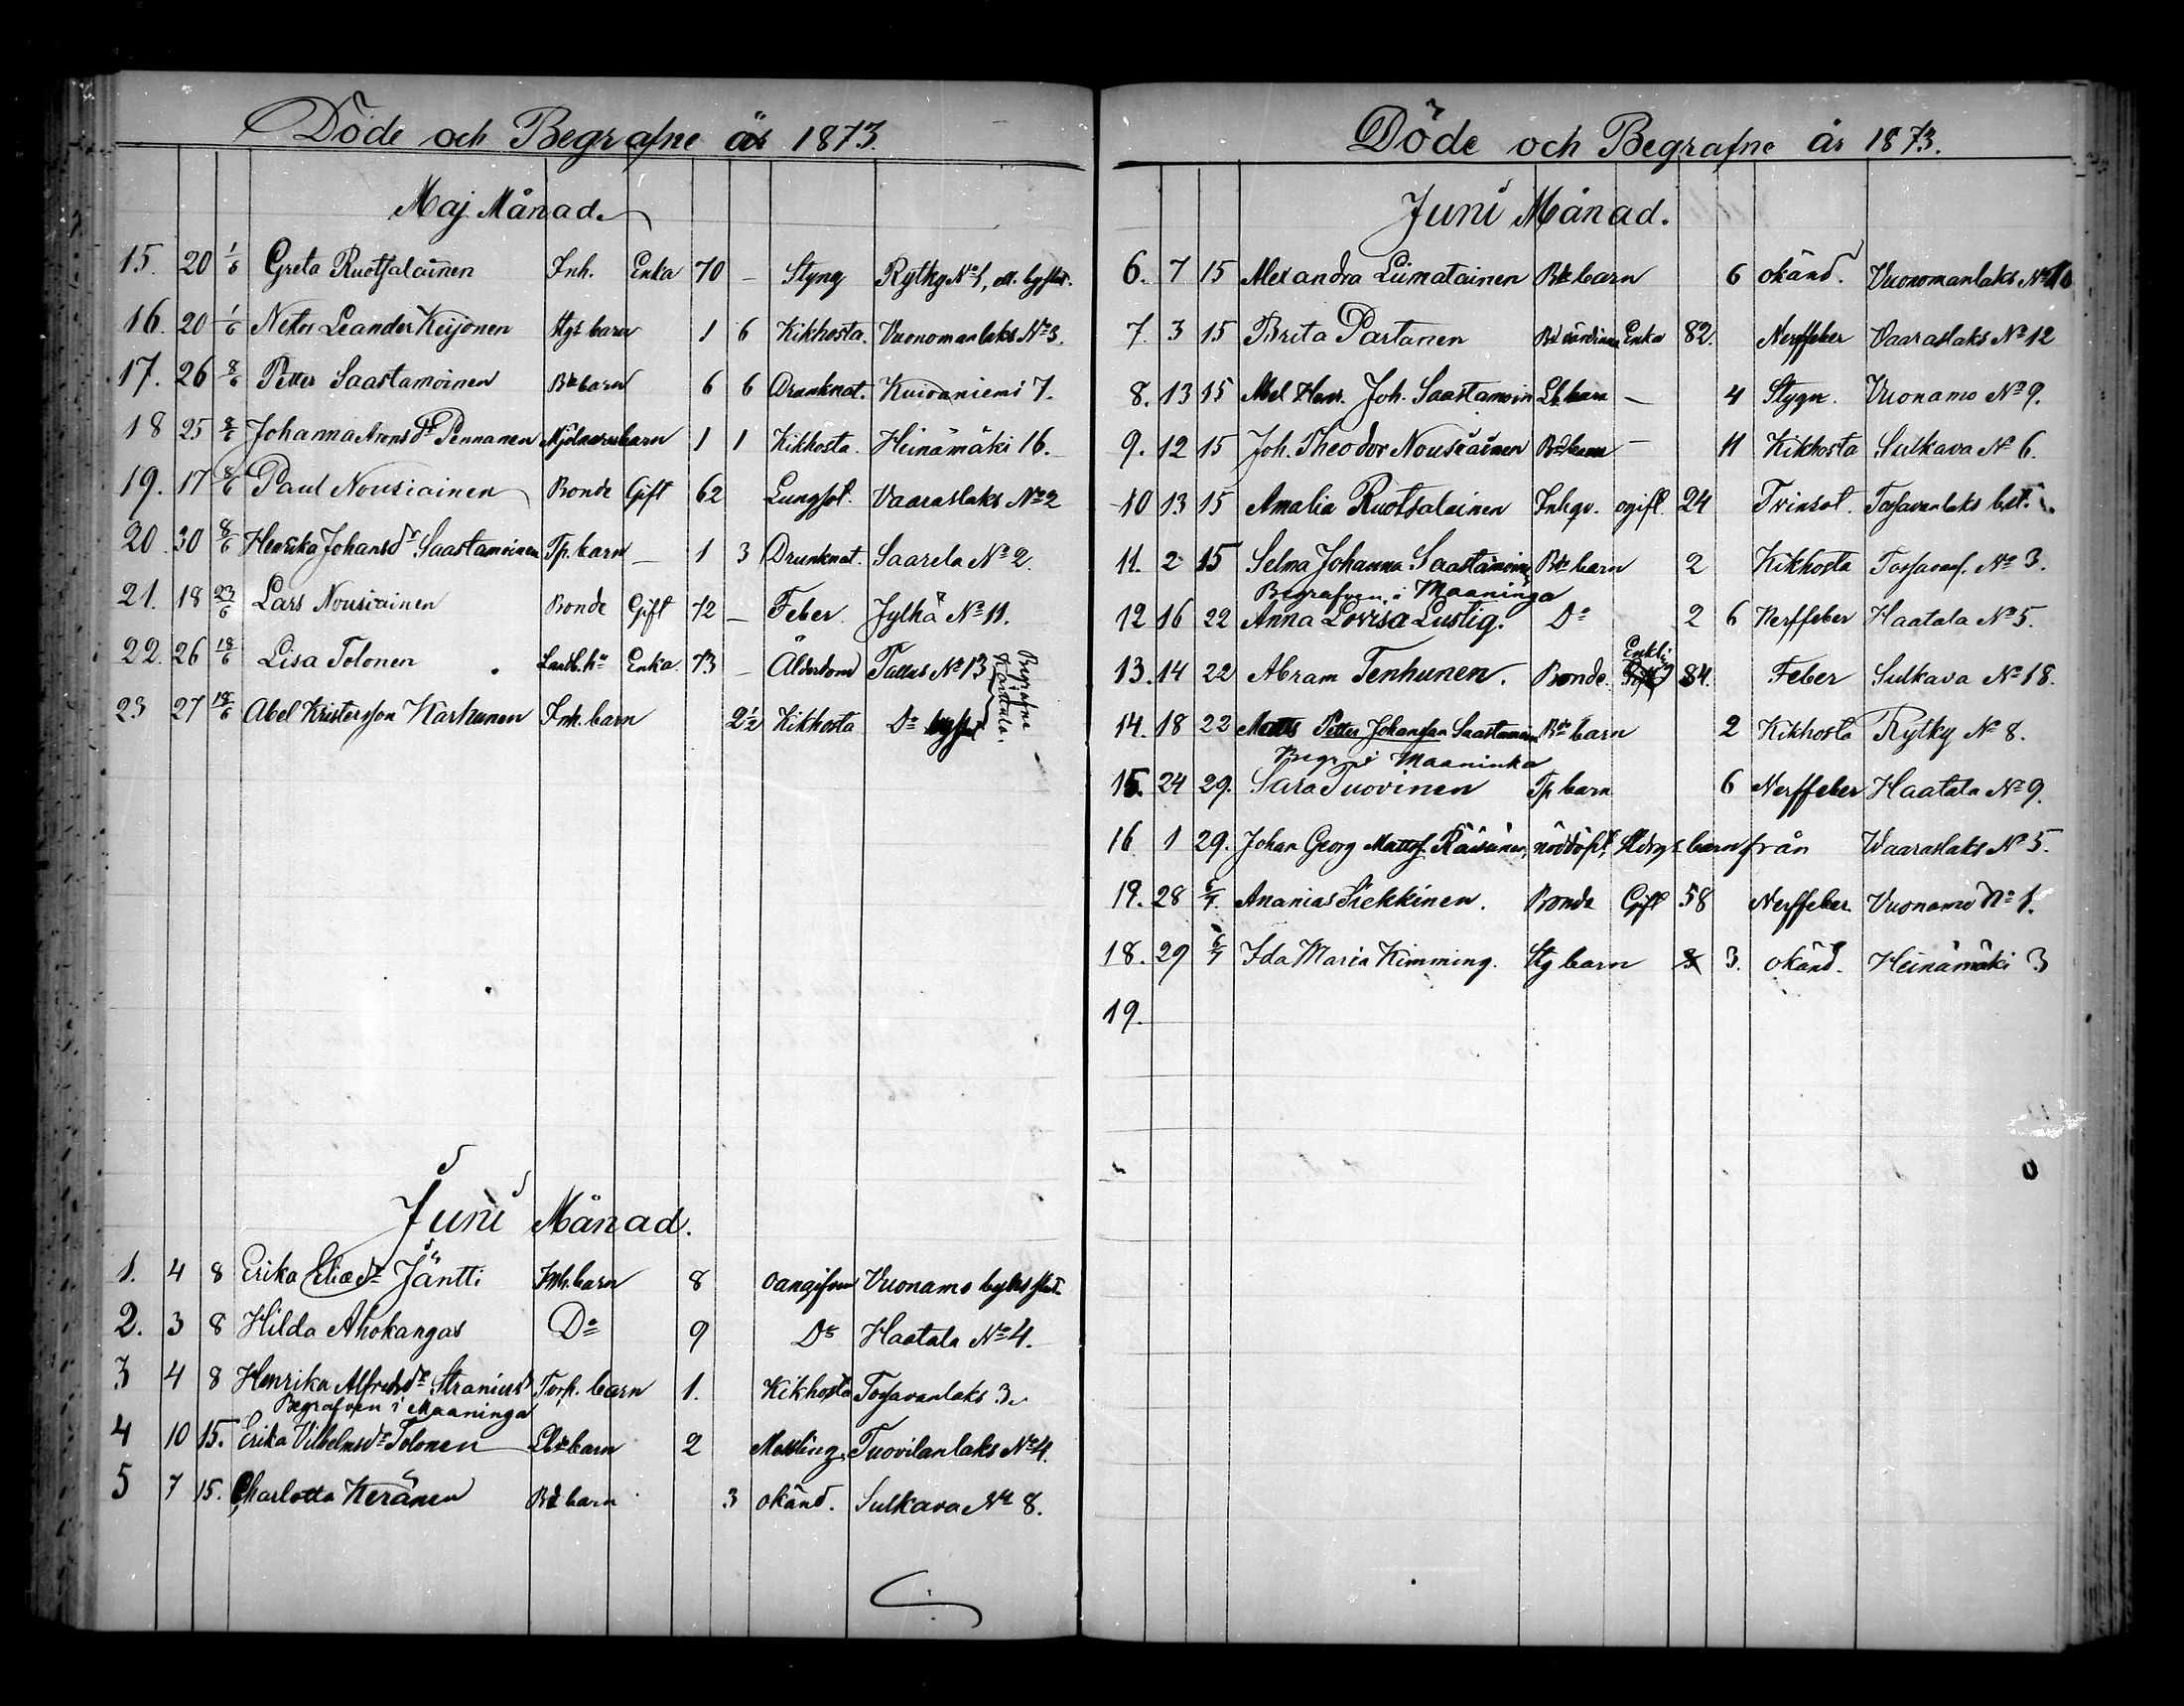 Döde och Begrafne år 1873.
Maj Månad.
15. 20 1/6 Greta Ruotsalainen Inh. Enka 70 – Styng Rytky No 1,
16. 20 1/6 Leander Keijonen barn 1 6 Kikhosta. Vuonomanlaks No 3.
17. 26 8/6 Petter Saastamoinen Bde barn 6 6 Drunknat. Kuivaniemi 7.
18 25 8/6 Johanna Aronsdr Pennanen Mjölnare barn 1 1 Kikhosta. Heinämäki 16.
19. 17 8/6 Paul Nousiainen Bonde Gift 62 Lungsot. Vaaraslaks No 2
20. 30 8/6 Henrika Johansdr Saastamoinen Tp. barn – 1 3 Drunknat. Saarela No 2.
21. 18 23/6 Lars Nousiainen Bonde Gift 72 – Feber. Jylhä No 11.
22. 26 18/6 Lisa Tolonen Enka. 73 – Ålderdom Tallus No 13 Begrafne i Karttula.
23 27 18/6 Abel Kristersson Karhunen Inh. barn 2 1/2 Kikhosta Do
Juni Månad.
1. 4 8 Erika Eliædr Jäntti Inh. barn 8 oangifven Vuonamo
2. 3 8 Hilda Ahokangas Do 9 Do Haatala No 4.
3 4 8 Henrika Alfredsdr Stranius Torp. barn 1. Kikhosta Tossavanlaks 3.
Begrafven i Maaninga
4 10 15. Erika Vilhelmsdr Tolonen Lbde barn 2 Messling. Tuovilanlaks No 4.
5 7 15. Charlotta Keränen Bde barn 3 okänd. Sulkava No 8.
Döde och Begrafne år 1873.
Juni Månad.
6. 7 15 Alexandra Liimatainen Bde barn 6 okänd. Vuonomanlaks No
7. 3 15 Brita Partanen Bde värdinna Enka 82. Nerffeber Vaaraslaks No 12
8. 13 15 Abel Joh. Saastamoin Lb. barn – 4 Stygn. Vuonamo No 9.
9. 12 15 Joh. Theodor Nousiainen Bde barn – 11 Kikhosta Sulkava No 6.
10 13 15 Amalia Ruotsalainen Inhqv. ogift. 24 Tvinsot. Tossavanlaks bst.
11. 2 15 Selma Johanna Saastamoin Bde barn 2 Kikhosta Tossavanl. No 3.
Begrafven i Maaninga
12 16 22 Anna Lovisa Lustig. Do 2 6 Nerffeber Haatala No 5.
13. 14 22 Abram Tenhunen. Bonde. Enkling 84. Feber Sulkava No 18.
14. 18 22 Petter Johansson Saastamoin Bde barn 2 Kikhosta Rytky No 8.
Begr. i Maaninka
15. 24 29. Sara Tuovinen Tp barn 6 Nerffeber Haatala No 9.
16 1 29. Johan Georg Mattss. Räisänen, nöddöpt, barn från Waaraslaks No 5.
19. 28 6/7. Ananias Hekkinen. Bonde Gift 58 Nerffeber. Vuonamo No 1.
18. 29 6/7 Ida Maria Kimming. Stg barn 3. okänd. Heinämäki 3
19.